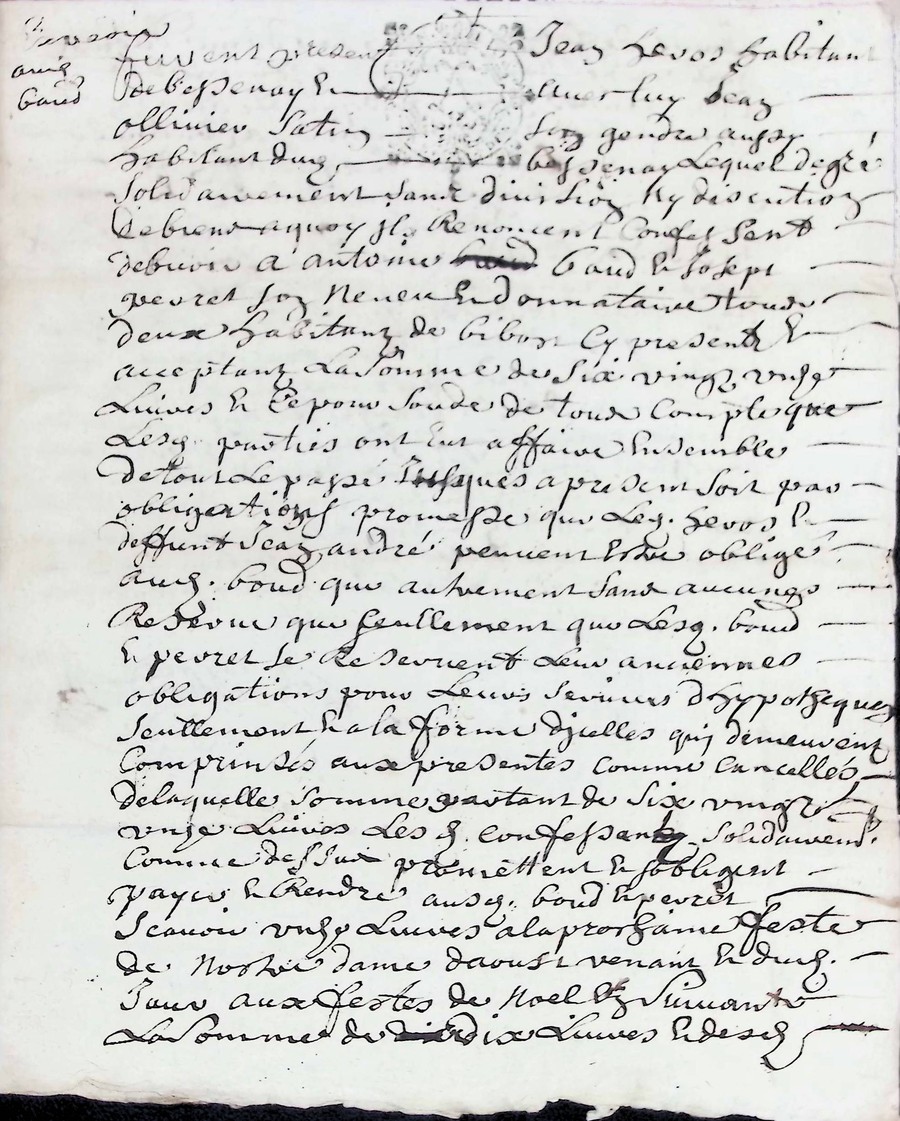 aud
baud
furent present Jean hevos habitant
de bessenay & avec luy Jean
ollinier Satin son gendre aussy
habitant dud bessenay Lequel de gré
Solidairement sans division ny discution
de biens a quoy ils Renoncent Confessent
debvoir a antoine baud & Josept
pevret son Neveu & donnataire tous
deux habitantz de bibost Cy presentz &
acceptanz La Somme de Six vingz unze
Livres & Ce pour Soude de tous Comple que
Lesd. parties ont Eut affaire Ensemble
de tout Le passé Jusques a present soit par
obligations promesse que Led. hevos &
deffunt Jean andré peuvent Estre obligé
aud. baud que autrement sans aucunes
Reserve que seullement que Lesd. baud
& pevret Se Reservent Leur anciennes
obligations pour Leurs Servirs d'hypotheques
Seullement & a la forme d'jcelles quj demeurent
Comprinses aux presentes comme Cancellés
de laquelle Somme partant de Six vingtz
unze Livres Lesd. Confessent Solidairemt.
Comme dessus promettent & sobligent
payer & Rendre ausd. baud & pevret
Scavoir unze Livres a la prochaine feste
de Nostre dame daoust venant & dud.
Jour aux festes de Noel Suivante
La Somme de dix Livres & desd